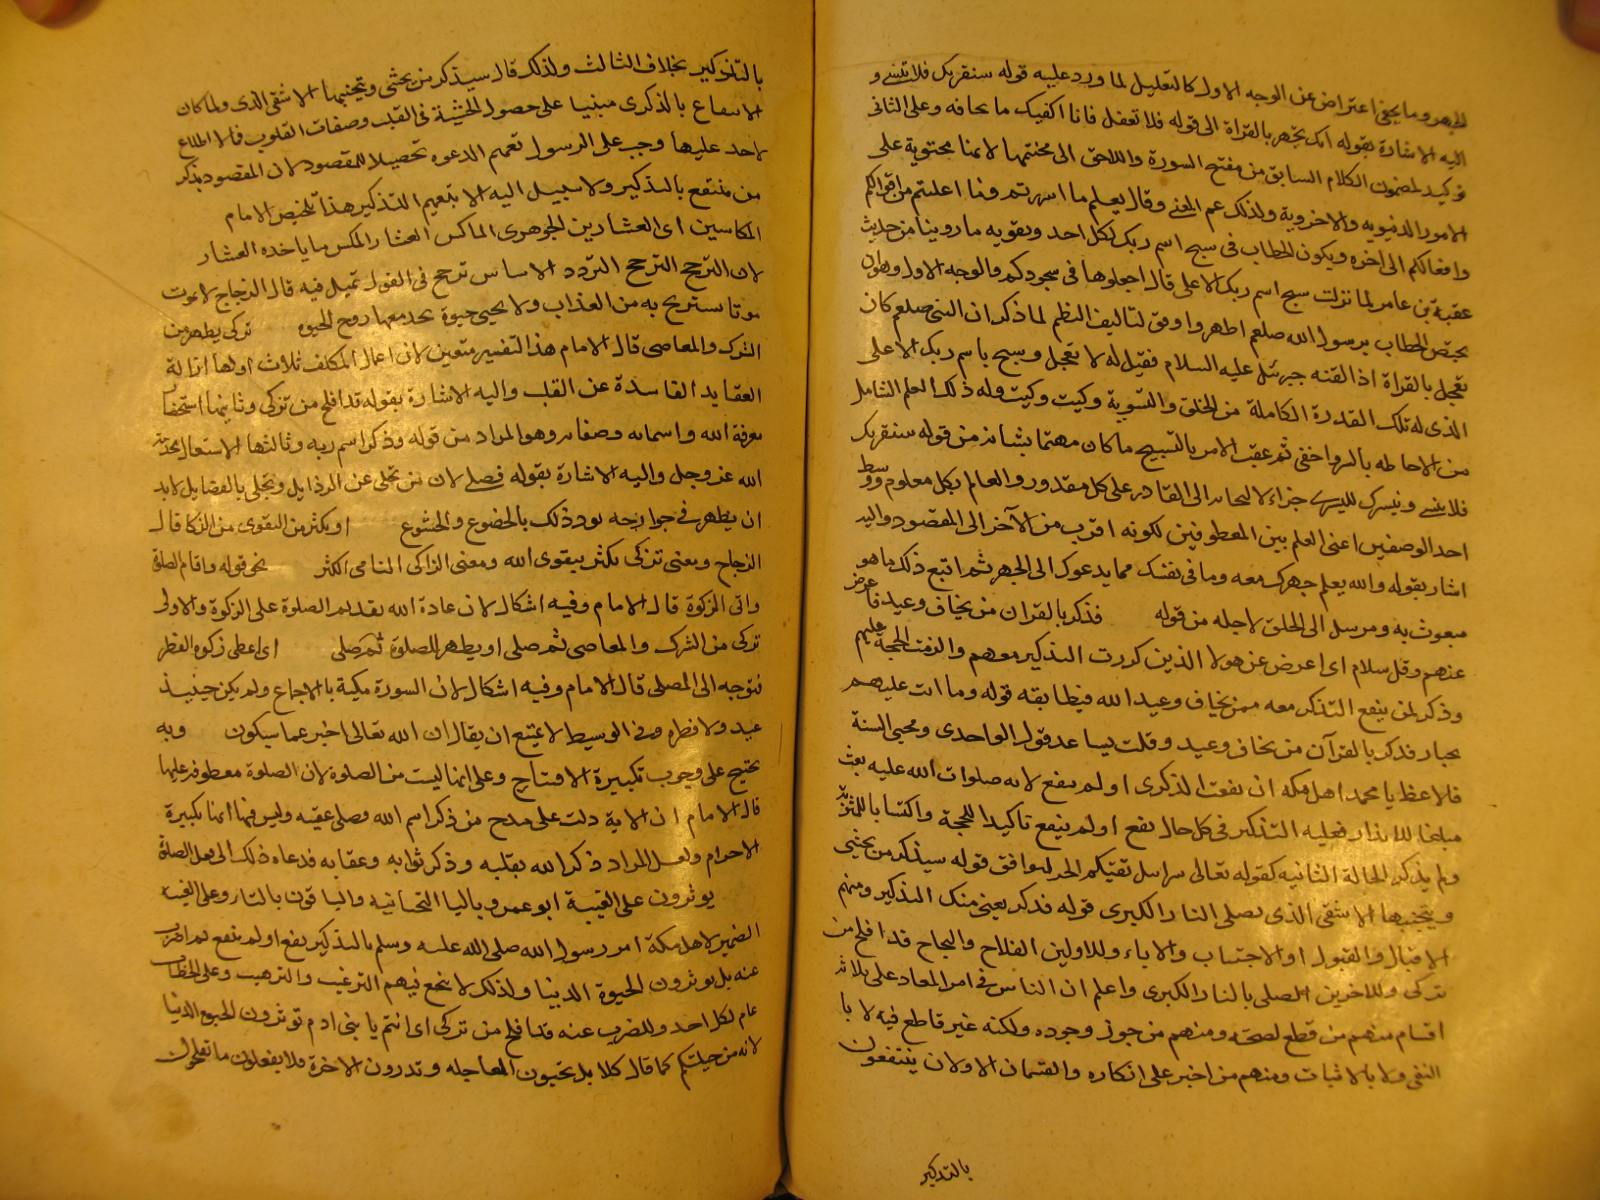 الجهر وما يخفى اعتراض عن الوجه الاول كالتعليل لما ورد عليه قوله سنقريك فلا تنسى و
اليه الاشارة بقوله انك تجهر بالقراة الى قوله فلا تفعل فانا اكفيك ما تخافه وعلى الثانى
توكيد لمضمون الكلام السابق من مفتح السورة واللاحق الى مختتمها لانها محتوية على
الامور الدنيويه والاخروية ولذلك عم المعنى وقال يعلم ما اسررتم وما اعلنتم من اقوالكم
وافعالكم الى اخره ويكون الخطاب فى سبح اسم ربك لكل احد ويقويه ما روينا من حديث
عقبة بن عامر لما نزلت سبح اسم ربك الاعلى قال اجعلوها فى سجودكم والوجه الاول وهو ان
يختص الخطاب برسول الله صلعم اظهر واوفق لتاليف النظم لما ذكر ان النبى صلعم كان
يعجل بالقراة اذا لقنه جبرئيل عليه السلام فقيل له لا تعجل وسبح باسم ربك الاعلى
الذى له تلك القدرة الكاملة من الخلق والتسوية وكيت وكيت وله ذلك العلم الشامل
من الاحاطه بالسر واخفى ثم عقب الامر بالتسبيح ما كان مهتما بشانه من قوله سنقريك
فلا تنسى ونيسرك لليسرى جزاء لالتجائه الى القادر على كل مقدور والعالم بكل معلوم ووسط
احد الوصفين اعنى العلم بين المعطوفين لكونه اقرب من الآخر الى المقصود واليه
اشار بقوله والله يعلم جهرك معه وما فى نفسك مما يدعوك الى الجهر ثم اتبع ذلك ما هو
مبعوث به ومرسل الى الخلق لاجله من قوله فذكر بالقران من يخاف وعيد فاعرض
عنهم وقل سلام اى اعرض عن هولا الذين كررت التذكير معهم والزمت الحجة عليهم
وذكر لمن ينفع التذكر معه ممن يخاف وعيد الله فيطابقه قوله وما انت عليهم
بجبار فذكر بالقرآن من يخاف وعيد وقلت يساعد قول الواحدى ومحيى السنة
فلا عظ يا محمد اهل مكه ان نفعت الذكرى او لم ينفع لانه صلوات الله عليه بعث
مبلغا للانذار فعليه التذكير فى كل حال نفع او لم ينفع تاكيدا للحجة واكتسابا للمثوبة
ولم يذكر الحالة الثانيه كقوله تعالى سرابيل تقيكم الحر لتوافق قوله سيذكر من يخشى
ويتجنبها الاشقى الذى يصلى النار الكبرى قوله فذكر يعنى منك التذكير ومنهم
الاقبال والقبول او الاجتناب والاباء وللاولين الفلاح والنجاح قد افلح من
تزكى وللاخرين الصلى بالنار الكبرى واعلم ان الناس فى امر المعاد على ثلاثة
اقسام منهم من قطع لصحته ومنهم من جوز وجوده ولكنه غير قاطع فيه لا با
النفى ولا بالاثبات ومنهم من اخبر على انكاره والقسمان الاولان ينتفعون
بالتذكير
بالتذكير بخلاف الثالث ولذلك قال سيذكر من يخشى ويتجنبها الاشقى الذى ولما كان
الانتفاع بالذكرى مبنيا على حصول الخشية فى القلب وصفات القلوب فالاطلاع
لاحد عليها وجب على الرسول تعميم الدعوه تحصيلا للمقصود لان المقصود تذكر
من ينتفع بالتذكير ولا سبيل اليه الا بتعيم التذكير هذا تلخيص الامام
المكاسين اى العشارين الجوهرى الماكس العشار المكس ما ياخده العشار
لان الترجح الترجح التردد الاساس ترجح فى القول تميل فيه قال الزجاج لا يموت
موتا يستريح به من العذاب ولا يحيى حيوة يجد معها روح الحيوه تزكى يطهر من
الشرك والمعاصى قال الامام هذا التفسير متعين لان اعمال المكلف ثلاث اولها ازالة
العقايد الفاسدة عن القلب واليه الاشارة بقوله قد افلح من تزكى وثانيها استحضا
معرفة الله واسمائه وصفاته وهو المراد من قوله وذكر اسم ربه وثالثها الاستعال بخدمة
الله عز وجل واليه الاشارة بقوله فصلى لان من تخلى عن الرذايل وتحلى بالفضايل لابد
ان يظهر فى جوارحه نور ذلك بالخضوع والخشوع او يكثر من التقوى من الزكا قال
الزجاج ومعنى تزكى تكثر بتقوى الله ومعنى الزاكى النامى الكثر نحو قوله واقام الصلوة
واتى الزكوة قال الامام وفيه اشكال لان عادة الله تقديم الصلوة على الزكوة والاولى
تزكى من الشرك والمعاصى ثم صلى او يطهر للصلوة ثم صلى اى اعطى زكوه الفطر
فتوجه الى المصلى قال الامام وفيه اشكال لان السورة مكية بالاجماع ولم يكن حينيذ
عيد ولا فطره وفى الوسيط لا يمتنع ان يقال ان الله تعالى اخبر عما سيكون وبه
يحتج على وجوب تكبيرة الافتتاح وعلى انها ليست من الصلوة لان الصلوة معطوفه عليها
قال الامام ان الاية دلت على مدح من ذكر اسم الله وصلى عقبه وليس فيها انها تكبيرة
الاحرام ولعل المراد ذكر الله بقلبه وذكر ثوابه وعقابه فدعاه ذلك الى فعل الصلوة
يوثرون على الغيبة ابو عمرو باليا التحتانيه والباقون بالتا وعلى الغيبة
الضمير لاهل مكة امر رسول الله صلى الله عليه وسلم بالتذكير نفع او لم ينفع ثم اضرب
عنه بل يوثرون الحيوة الدنيا ولذلك لا ينجع فيهم الترغيب والترهيب وعلى الخطاب
عام لكل احد وللضرب عنه قد افلح من تزكى اى انتم يا بنى ادم توثرون الحيوه الدنيا
لانه من جبلتكم كما قال كلا بل تحبون العاجله وتذرون الاخرة فلا يفعلون ما تفلحون